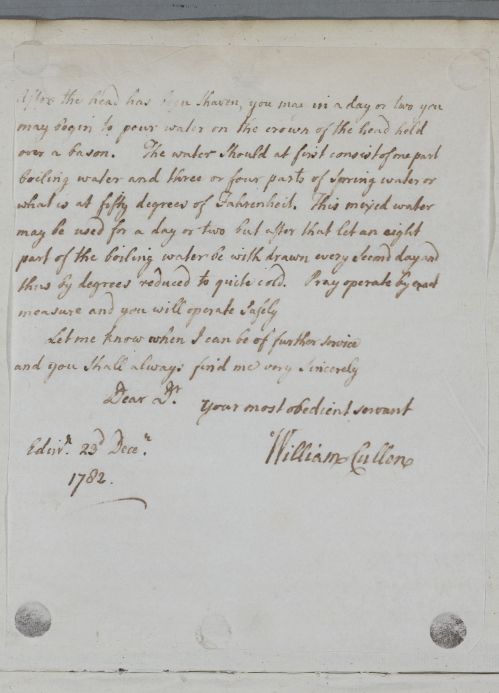 After the head has been shaven, you may in a day or two you
may begin to pour water on the crown of the head held
over a bason. The water should at first consist of one part
boiling water and three or four parts of Spring water or
what is at fifty degrees of Fahrenheit. This mixed water
may be used for a day or two but after that let an eight
part of the boiling water be with drawn every second day and
thus by degrees reduced to quite cold. Pray operate by exact
measure and you will operate safely
Let me know when I can be of further service
and you shall always find me very Sincerely
Dear Dr.
your most obedient servant
Edinr. 23d Decr.
William Cullen
1782.